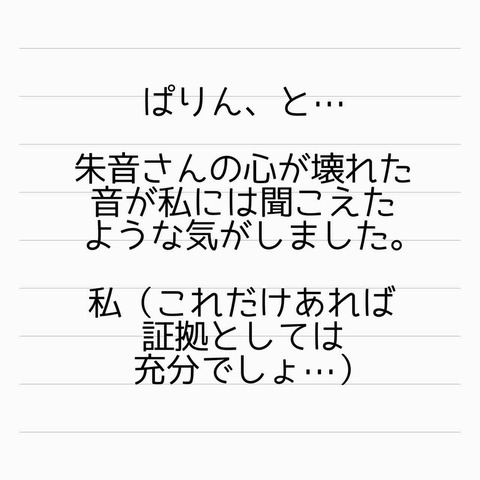 ぱりん、と…
朱音さんの心が壊れた
音が私には聞こえた
ような気がしました。
私（これだけあれば
証拠としては
充分でしょ…）